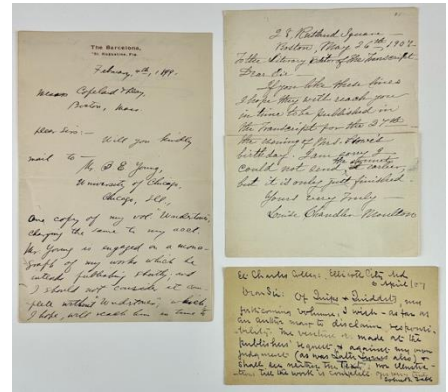 The Barcelona,
St. Augustine, Fla.
February 4th, 1899.
Messrs Copeland & Day,
Boston, Mass.
Dear Sirs:-
Will you kindly
mail to
Mr B E Young,
University of Chicago,
Chicago, Ill.,
One copy of my vol
charging the same to my acct.
Mr Young is engaged on a mono-
graph of my works which he
intends publishing shortly, and
I should not consider it com-
plete without which,
I hope, will reach him in time to
28 Rutland Square
Boston, May 26th, 1907
To the Literary Editor of the Transcript
Dear Sir
If you like these lines
I hope they will reach you
in time to be published in
the Transcript for the 27th
the evening of Mrs. Howe's
birthday. I am sorry I
could not send the sonnet earlier,
but it is only just finished.
Yours very truly
Louise Chandler Moulton
St Charles College, Ellicott City, Md
6 April '07
Dear Sir: Of Quips & Quiddits, my
forthcoming volume, I wish - as far as
an author may to disclaim responsi-
bility. The version is made at the
publishers' request & against my own
judgment (as was also) &
shall see neither the text, nor illustra-
tions till the work is complete